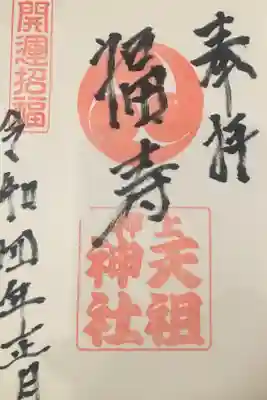 奉拝
福寿
押上
天祖
神社
開運招福
令和四年正月